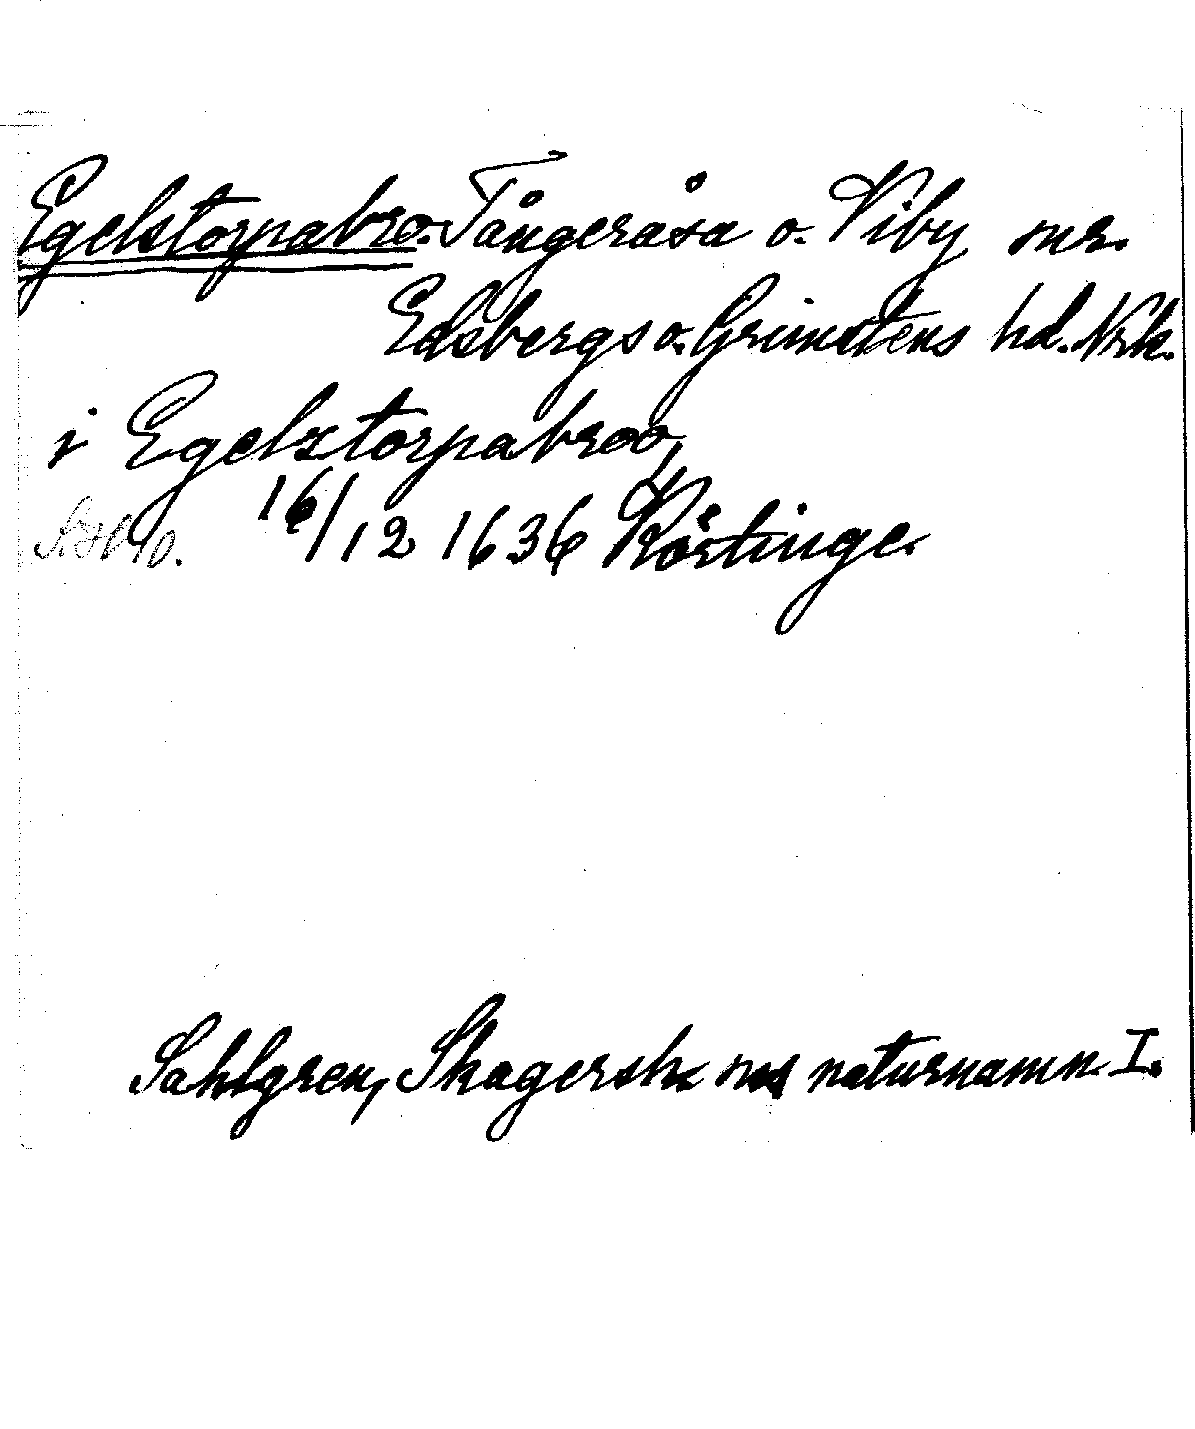 Egelstorpabro. Tångeråsa o. Viby snr.
Edsbergs o. Grimstens hd. Nrk.
i Egelsztorpabroo,
16/12 1636 Körtinge.
Sahlgren, Skagersh. naturnamn I.